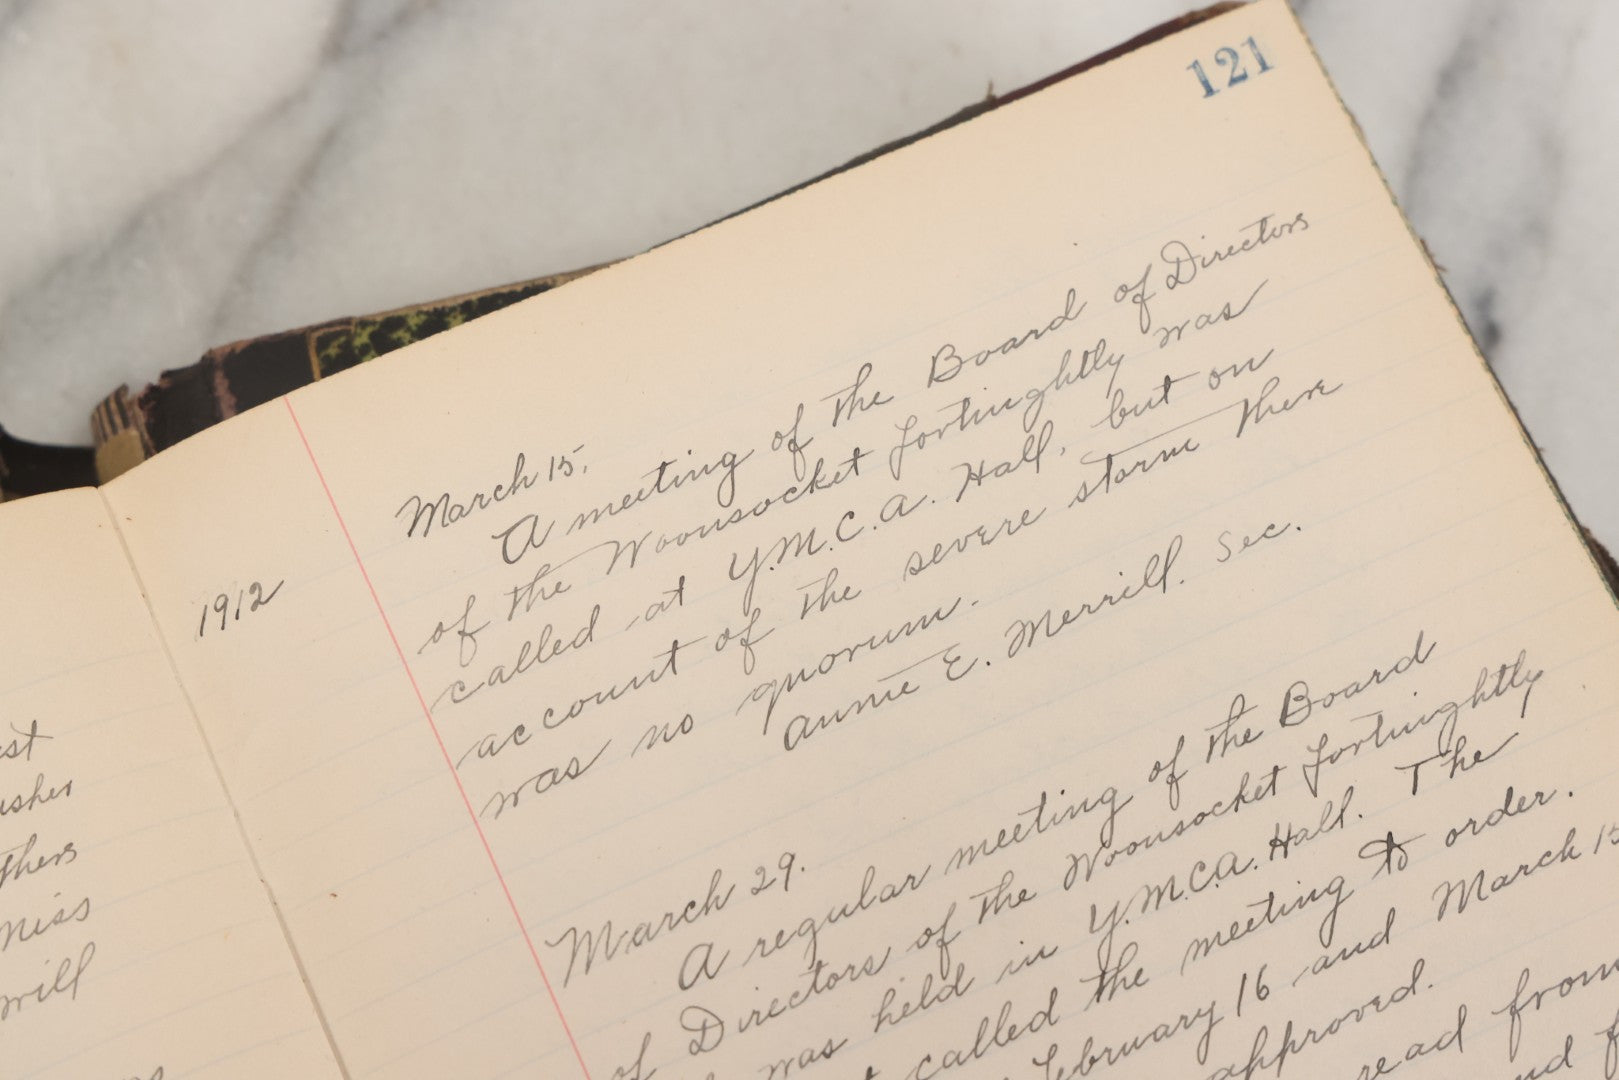 121
1912
March 15.
A meeting of the Board of Directors
of the Woonsocket Fortnightly was
called at Y.M.C.A. Hall, but on
account of the severe storm there
was no quorum.
Annie E. Merrill. Sec.
March 29.
A regular meeting of the Board
of Directors of the Woonsocket Fortnightly
was held in Y.M.C.A. Hall. The
called the meeting to order.
February 16 and March 15
approved.
read from
Miss
will